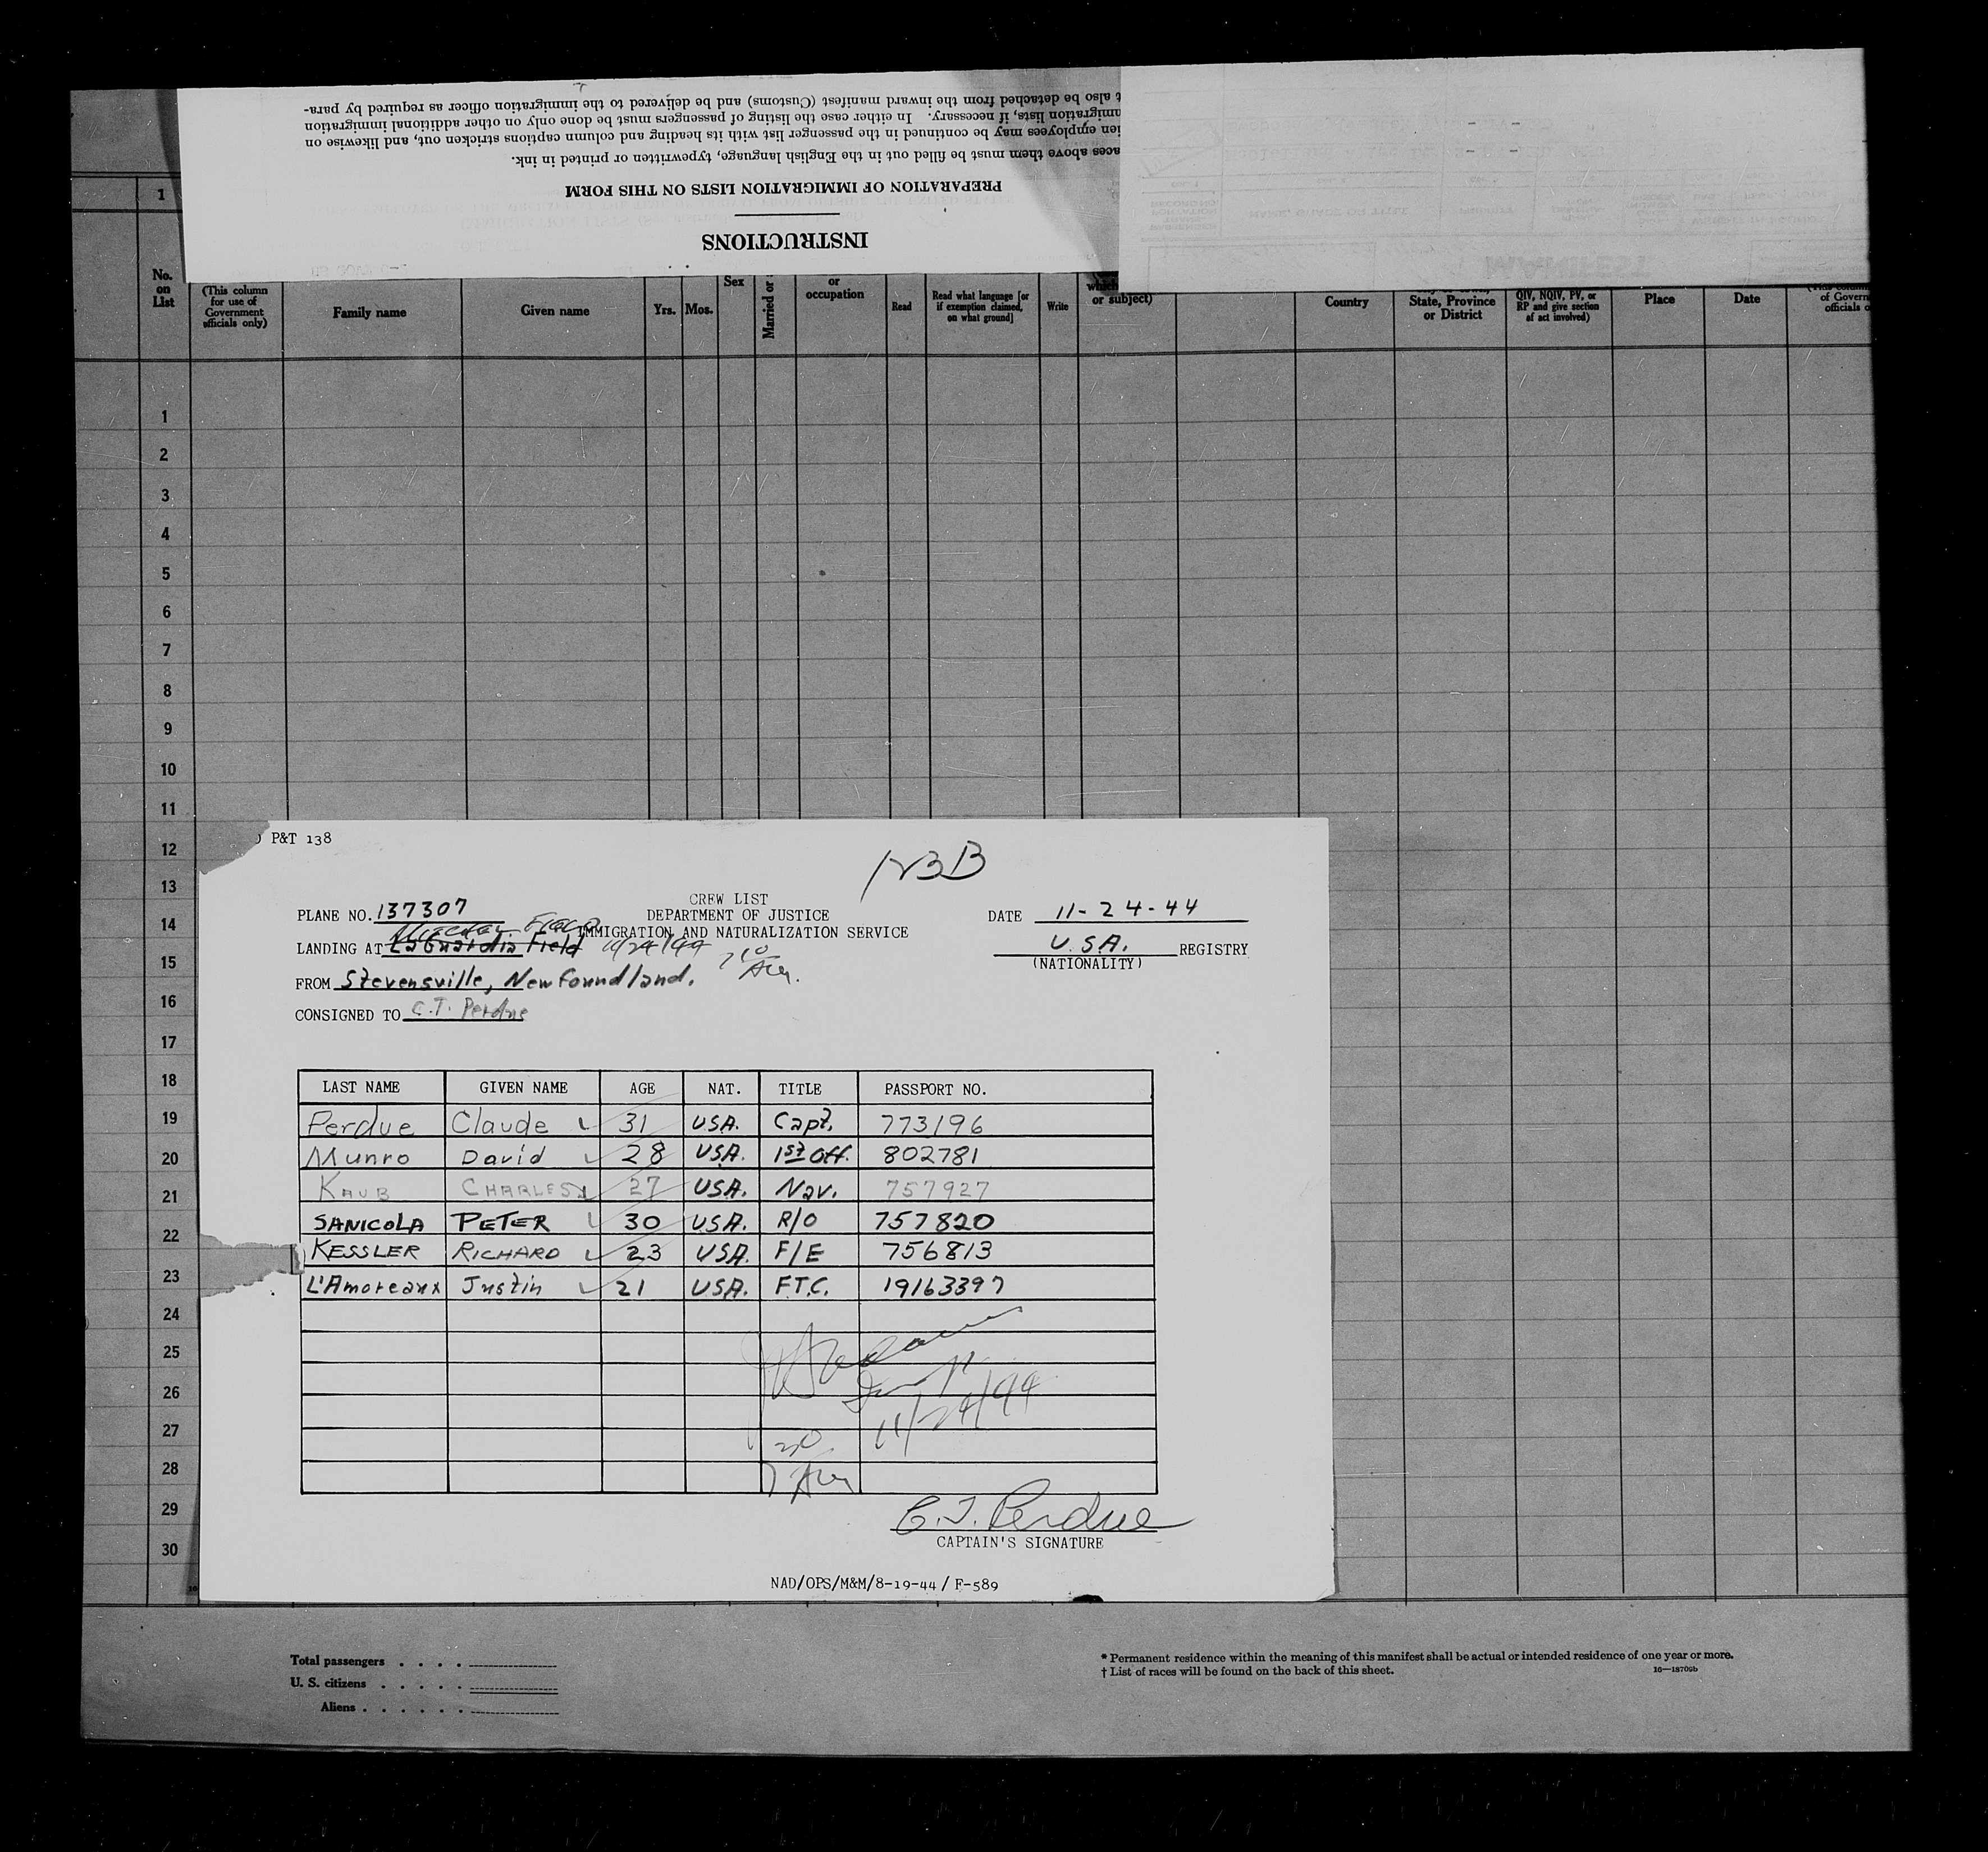 t also be detached from the inward manifest (Customs) and be delivered to the immigration officer as required by para-
migration lists, if necessary. In either case the listing of passengers must be done only on other additional immigration
ien employees may be continued in the passenger list with its heading and column captions stricken out, and likewise on
aces above them must be filled out in the English language, typewritten or printed in ink.
PREPARATION OF IMMIGRATION LISTS ON THIS FORM
INSTRUCTIONS
1
No. on List
(This column for use of Government officials only)
Family name
Given name
Yrs.
Mos.
Sex
Married or
or occupation
Read
Read what language [or if exemption claimed, on what ground]
Write
which
or subject)
Country
State, Province or District
QIV, NQIV, PV, or RP and give section of act involved)
Place
Date
of Govern
officials o
1
2
3
4
5
6
7
8
9
10
11
12
13
14
15
16
17
18
19
20
21
22
23
24
25
26
27
28
29
30
P&T 138
123B
CREW LIST
PLANE NO. 137307
DEPARTMENT OF JUSTICE
DATE 11-24-44
Field
IMMIGRATION AND NATURALIZATION SERVICE
LANDING AT LaGuardia Field 11/24/44
U.S.A. REGISTRY
(NATIONALITY)
FROM Stevensville, Newfoundland.
CONSIGNED TO C.T. Perdue
LAST NAME GIVEN NAME AGE NAT. TITLE PASSPORT NO.
Perdue Claude 31 USA. Capt. 773196
Munro David 28 USA. 1st Off. 802781
KAUB CHARLES 27 USA. Nav. 757927
SANICOLA PETER 30 USA. R/O 757820
KESSLER RICHARD 23 USA. F/E 756813
L'Amoreaux Justin 21 USA. F.T.C. 19163397
11/24/44
C.T. Perdue
CAPTAIN'S SIGNATURE
NAD/OPS/M&M/8-19-44 / F-589
Total passengers . . . .
U. S. citizens . . . . .
Aliens . . . . . .
* Permanent residence within the meaning of this manifest shall be actual or intended residence of one year or more.
† List of races will be found on the back of this sheet.